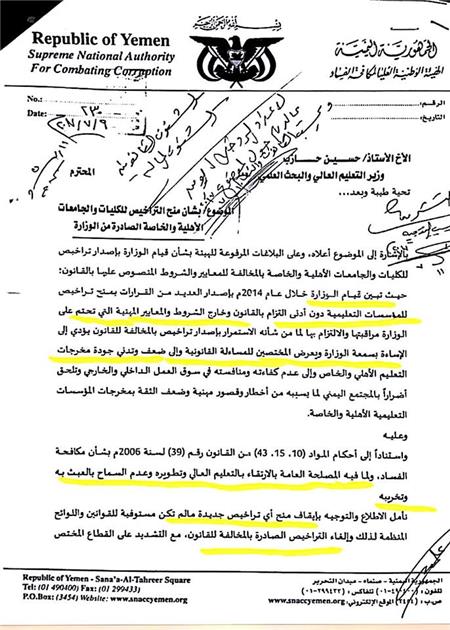 بسم الله الرحمن الرحيم
Republic of Yemen
Supreme National Authority
For Combating Corruption
الجمهورية اليمنية
الهيئة الوطنية العليا لمكافحة الفساد
No.:
Date:
الرقم:
التاريخ:
الأخ الأستاذ/ حسين حازب
وزير التعليم العالي والبحث العلمي
المحترم
تحية طيبة وبعد...
الموضوع/ بشأن منح التراخيص للكليات والجامعات
الأهلية والخاصة الصادرة من الوزارة
بالإشارة إلى الموضوع أعلاه، وعلى البلاغات المرفوعة للهيئة بشأن قيام الوزارة بإصدار تراخيص
للكليات والجامعات الأهلية والخاصة بالمخالفة للمعايير والشروط المنصوص عليها بالقانون:
حيث تبين قيام الوزارة خلال عام 2014م بإصدار العديد من القرارات بمنح تراخيص
للمؤسسات التعليمية دون أدنى التزام بالقانون وخارج الشروط والمعايير المهنية التي تحتم على
الوزارة مراقبتها والالتزام بها لما من شأنه الاستمرار بإصدار تراخيص بالمخالفة للقانون يؤدي إلى
الإساءة بسمعة الوزارة ويعرض المختصين للمساءلة القانونية وإلى ضعف وتدني جودة مخرجات
التعليم الأهلي والخاص وإلى عدم كفاءته ومنافسته في سوق العمل الداخلي والخارجي وتلحق
أضراراً بالمجتمع اليمني لما يسببه من أخطار وقصور مهنية وضعف الثقة بمخرجات المؤسسات
التعليمية الأهلية والخاصة.
وعليه
واستناداً إلى أحكام المواد (10، 15، 43) من القانون رقم (39) لسنة 2006م بشأن مكافحة
الفساد، ولما فيه المصلحة العامة بالإرتقاء بالتعليم العالي وتطويره وعدم السماح بالعبث به
وتخريبه
نأمل الاطلاع والتوجيه بإيقاف منح أي تراخيص جديدة مالم تكن مستوفية للقوانين واللوائح
المنظمة لذلك وإلغاء التراخيص الصادرة بالمخالفة للقانون، مع التشديد على القطاع المختص
Republic of Yemen - Sana'a-Al-Tahreer Square
Tel: (01 490400) Fax: (01 299433)
P.O.Box: (3454) Website: www.snaccyemen.org
الجمهورية اليمنية - صنعاء - ميدان التحرير
www.snaccyemen.org